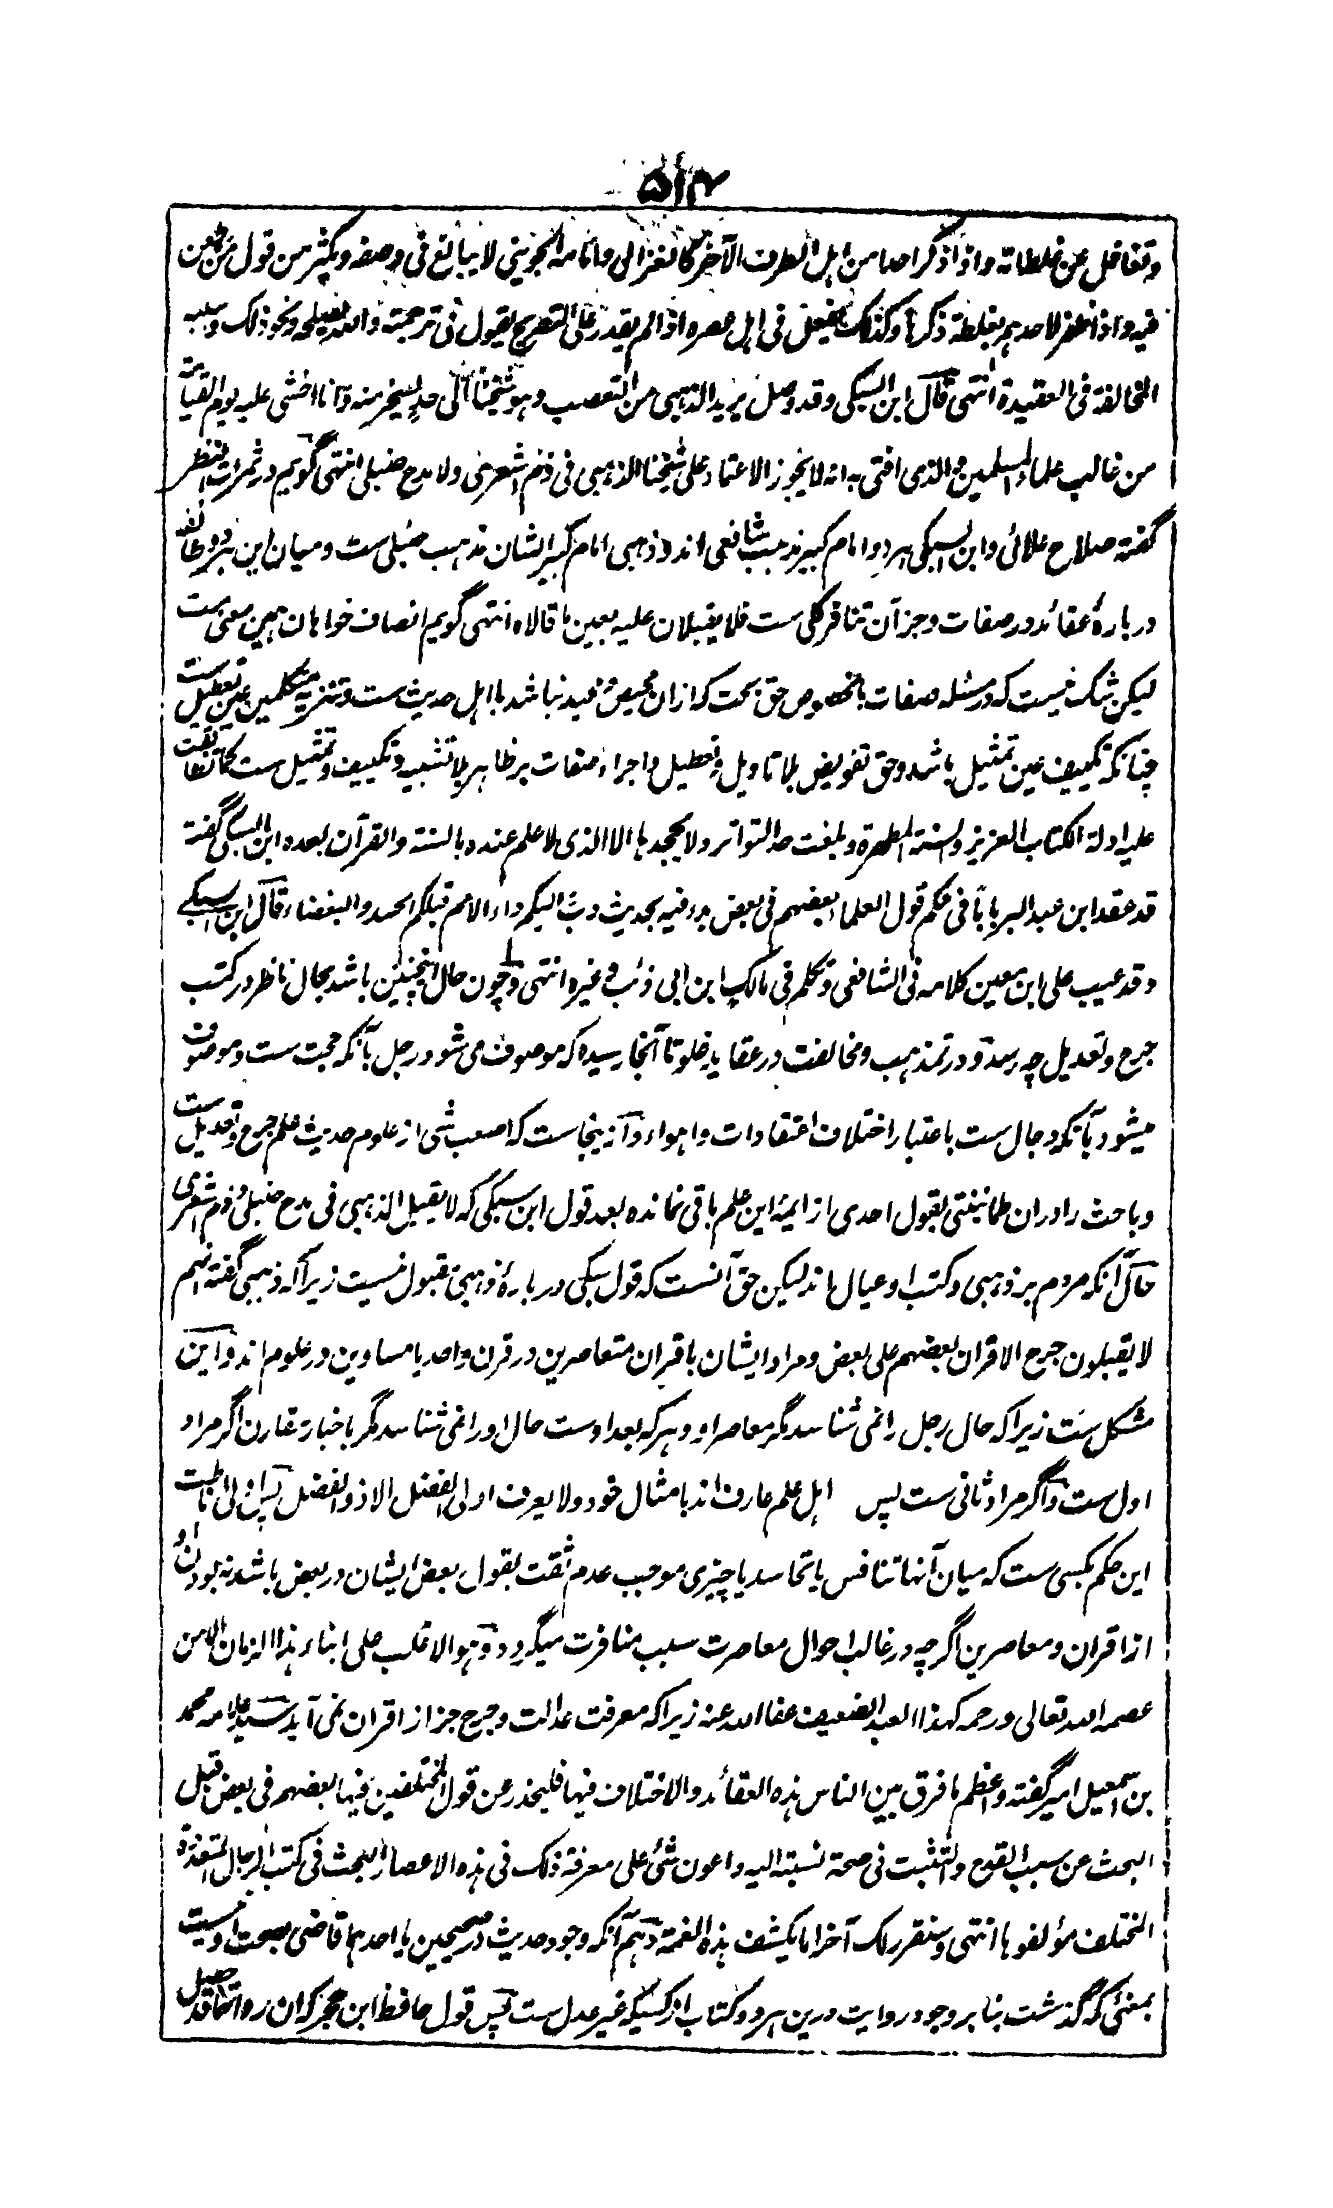 ۵۱۴
وتغافل عن غلطاته واذا ذکر احدا من اهل الطرف الآخر کالغزالی وامامه الجوینی لا یبالغ فی وصفه ویکثر من قول من طعن
فیه واذا ظفر لاحدهم بغلطة ذکرها وکذلک یفعل فی اهل عصره اذا لم یقدر علی التصریح یقول فی ترجمته والله یصلحه ونحو ذلک وسببه
المخالفة فی العقیدة انتهی قال ابن السبکی وقد وصل یرید الذهبی من التعصب وهو شیخنا الی حد یسخر منه وانا اخشی علیه یوم القیامة
من غالب علماء المسلمین والذی افتی به انه لا یجوز الاعتماد علی شیخنا الذهبی فی ذم اشعری ولا مدح حنبلی انتهی گویم در ثمرات النظر
گفته صلاح علائی وابن السبکی هر دو امام کبیر مذهب شافعی اند وذهبی امام کبیر الشان مذهب حنبلی ست ومیان این هر دو طائفه
دربارهٔ عقائد ودر صفات وجز آن تنافر کلی ست فلا یقبلان علیه بعین ما قالاه انتهی گویم انصاف خواهان همین معنی ست
لیکن شک نیست که در مسئله صفات بالخصوص حق بحت که ازان محیص ومحید نباشد با اهل حدیث ست وتنزیه متکلمین عین تعطیل ست
چنانکه تکییف عین تمثیل باشد وحق تفویض بلا تاویل وتعطیل واجراء صفات بر ظاهر بلا تشبیه وتکییف وتمثیل ست کما تطابقت
علیه ادلة الکتاب العزیز والسنة المطهرة وبلغت حد التواتر ولا یجحدها الا الذی لا علم عنده بالسنة والقرآن بعده ابن السبکی گفته
قد عقد ابن عبد البر بابا فی حکم قول العلماء بعضهم فی بعض بدء فیه بحدیث دب الیکم داء الامم قبلکم الحسد والبغضاء قال ابن السبکی
وقد عیب علی ابن معین کلامه فی الشافعی وتکلم فی مالک ابن ابی ذئب وغیره انتهی وچون حال اینچنین باشد بحال ناظر در کتب
جرح وتعدیل چه رسد ودر تمذهب ومخالفت در عقاید غلو تا آنجا رسیده که موصوف می شود رجل بآنکه حجت ست وموصوف
میشود بآنکه دجال ست باعتبار اختلاف اعتقادات واهواء وازینجاست که اصعب شی از علوم حدیث علم جرح وتعدیل ست
وباحث را دران طمانینتی بقول احدی از ایمهٔ این علم باقی نمانده بعد قول ابن سبکی که لا یقبل الذهبی فی مدح حنبلی وذم اشعری
حال آنکه مردم بر ذهبی وکتب او عیال اند لیکن حق آنست که قول سبکی دربارهٔ ذهبی مقبول نیست زیرا که ذهبی گفته انهم
لا یقبلون جرح الاقران بعضهم علی بعض ومراد ایشان باقران متعاصرین در قرن واحد یا مساوین در علوم اند واین
مشکل ست زیرا که حال رجل را نمی شناسد مگر معاصر او وهر که بعد اوست حال او را نمی شناسد مگر باخبار مقارن اگر مراد
اول ست واگر مراد ثانی ست پس اهل علم عارف اند بامثال خود ولا یعرف اولی الفضل الا ذو الفضل پس اولی اناطت
این حکم بکسی ست که میان آنها تنافس یا تحاسد یا چیزی موجب عدم ثقت بقول بعض ایشان در بعض باشد نه بودن او
از اقران ومعاصرین اگر چه در غالب احوال معاصرت سبب منافرت میگردد وهو الاغلب علی ابناء هذا الزمان الا من
عصمه الله تعالی ورحمه کهذا العبد الضعیف عفا الله عنه زیرا که معرفت عدالت وجرح جز از اقران نمی آید سید علامه محمد
بن اسمعیل امیر گفته واعظم ما فرق بین الناس هذه العقائد والاختلاف فیها فلیحذر عن قول المختلفین فیها بعضهم فی بعض قبل
البحث عن سبب القدح والتثبت فی صحة نسبته الیه واعون شئ علی معرفة ذلک فی هذه الاعصار البحث فی کتب الرجال المتعددة
المختلف مؤلفوها انتهی وسنقرر لک آخرا ما یکشف هذه الغمة دهم آنکه وجود حدیث در صحیحین یا احدهما قاضی بصحت او نیست
بمعنی که گذشت بنا بر وجود روایت درین هر دو کتاب از کسیکه غیر عدل ست پس قول حافظ ابن حجر که ان رواتهما قد حصل